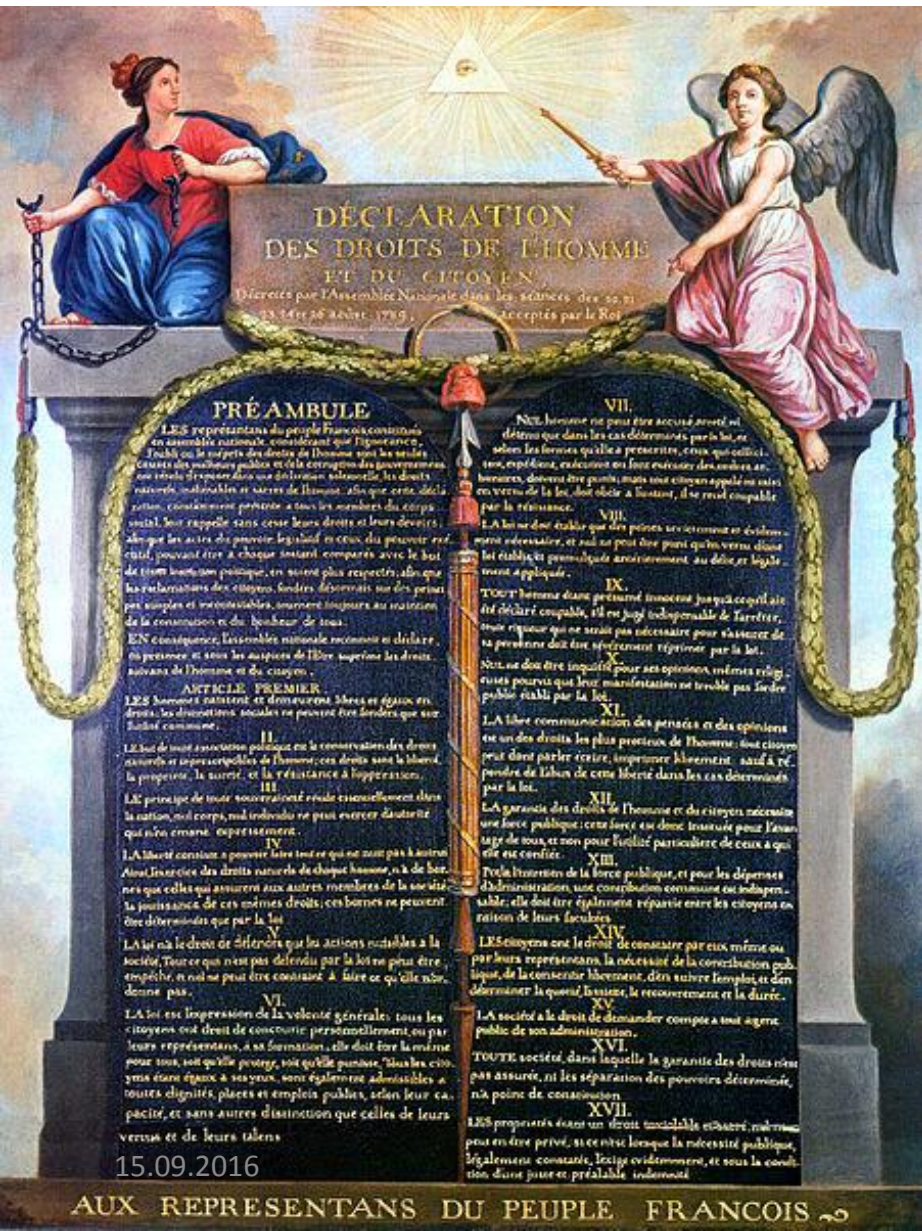 DÉCLARATION
DES DROITS DE L'HOMME
ET DU CITOYEN
Décretés par l'Assemblée Nationale dans les séances des 20. 21
23. 24 et 26 août 1789, acceptés par le Roi
PRÉAMBULE
LES représentans du peuple François constitués
en assemblée nationale, considérant que l'ignorance,
l'oubli ou le mépris des droits de l'homme sont les seules
causes des malheurs publics et de la corruption des gouvernemens
ont résolu d'exposer dans une déclaration solemnelle, les droits
naturels, inaliénables et sacrés de l'homme: afin que cette décla
ration, constamment présente a tous les membres du corps
social, leur rappelle sans cesse leurs droits et leurs devoirs
afin que les actes du pouvoir législatif et ceux du pouvoir exé
cutif, pouvant être a chaque instant comparés avec le but
de toute institution politique, en soient plus respectés; afin que
les reclamations des citoyens, fondées désormais sur des princi
pes simples et incontestables, tournent toujours au maintien
de la constitution et du bonheur de tous.
EN conséquence, l'assemblée nationale reconnoit et déclare
en présence et sous les auspices de l'Etre suprême les droits
suivans de l'homme et du citoyen.
ARTICLE PREMIER.
LES hommes naissent et demeurent libres et égaux en
droits; les distinctions sociales ne peuvent être fondées que sur
l'utilité commune.
II.
LE but de toute association politique est la conservation des droits
naturels et imprescriptibles de l'homme; ces droits sont la liberté,
la propriété, la sureté, et la résistance à l'oppression.
III.
LE principe de toute souveraineté réside essentiellement dans
la nation, nul corps, nul individu ne peut exercer d'autorité
qui n'en émane expressement.
IV.
LA liberté consiste a pouvoir faire tout ce qui ne nuit pas à autrui
Ainsi, l'exercice des droits naturels de chaque homme, n'a de bor
nes que celles qui assurent aux autres membres de la société
la jouissance de ces mêmes droits; ces bornes ne peuvent
être déterminées que par la loi
V.
LA loi n'a le droit de défendre que les actions nuisibles à la
société. Tout ce qui n'est pas défendu par la loi ne peut être
empêché, et nul ne peut être contraint à faire ce qu'elle n'or-
donne pas.
VI.
LA loi est l'expression de la volonté générale; tous les
citoyens ont droit de concourir personnellement, ou par
leurs représentans, à sa formation; elle doit être la même
pour tous, soit qu'elle protege, soit qu'elle punisse. Tous les cito
yens étant égaux à ses yeux, sont également admissibles a
toutes dignités, places et emplois publics, selon leur ca
pacité, et sans autres distinction que celles de leurs
vertus et de leurs talens
VII.
NUL homme ne peut être accusé, arreté ni
détenu que dans les cas déterminés par la loi, et
selon les formes qu'elle à prescrites, ceux qui sollici
tent, expédient, exécutent ou font exécuter des ordres ar
bitraires, doivent être punis; mais tout citoyen appelé ou saisi
en vertu de la loi, doit obéir a l'instant, il se rend coupable
par la résistance.
VIII.
LA loi ne doit établir que des peines strictement et évidem
ment nécessaire, et nul ne peut être puni qu'en vertu d'une
loi établie et promulguée antérieurement au délit, et légale
ment appliquée.
IX.
TOUT homme étant présumé innocent jusqu'à ce qu'il ait
été déclaré coupable, s'il est jugé indispensable de l'arrêter,
toute rigueur qui ne serait pas nécessaire pour s'assurer de
sa personne doit être sévèrement réprimée par la loi.
X.
NUL ne doit être inquiété pour ses opinions, mêmes religi
euses pourvu que leur manifestation ne trouble pas l'ordre
public établi par la loi.
XI.
LA libre communication des pensées et des opinions
est un des droits les plus précieux de l'homme: tout citoyen
peut dont parler écrire, imprimer librement sauf à ré
pondre de l'abus de cette liberté dans les cas déterminés
par la loi.
XII.
LA garantie des droits de l'homme et du citoyen nécessite
une force publique: cette force est donc instituée pour l'avan
tage de tous, et non pour l'utilité particuliere de ceux a qui
elle est confiée.
XIII.
Pour l'entretien de la force publique, et pour les dépenses
d'administration, une contribution commune est indispen
sable; elle doit être également répartie entre les citoyens en
raison de leurs facultés
XIV.
LES citoyens ont le droit de constater par eux même ou
par leurs représentans, la nécessité de la contribution pub
lique, de la consentir librement, d'en suivre l'emploi, et d'en
déterminer la quotité, l'assiette, le recouvrement et la durée.
XV.
LA société a le droit de demander compte a tout agent
public de son administration.
XVI.
TOUTE société, dans laquelle la garantie des droits n'est
pas assurée, ni les séparation des pouvoirs déterminée,
n'a point de constitution
XVII.
LES propriétés étant un droit inviolable et sacré, nul ne
peut en être privé, si ce n'est lorsque la nécessité publique,
légalement constatée, l'exige évidemment, et sous la condi
tion d'une juste et préalable indemnité
15.09.2016
AUX REPRESENTANS DU PEUPLE FRANCOIS